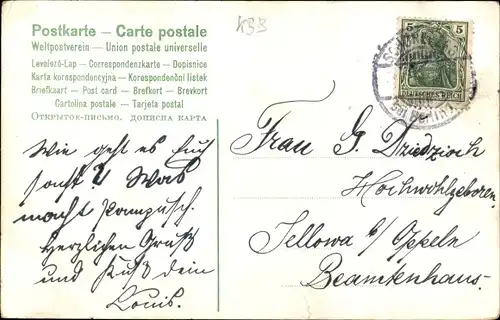 Postkarte – Carte postale
Weltpostverein – Union postale universelle
Levelező-Lap – Correspondenzkarte – Dopisnice
Karta korespondencyjna – Korespondenční listek
Briefkaart – Post card – Brefkort – Brevkort
Cartolina postale – Tarjeta postal
Открытое письмо. дописна карта
K33
5 5
DEUTSCHES REICH
Wie geht es Euch
sonst? Was
macht
Herzlichen Gruß
und Kuß dein
Louis.
Frau G. Dziedzioch
Hochwohlgeboren
Sellowa b/ Oppeln
Beamtenhaus.